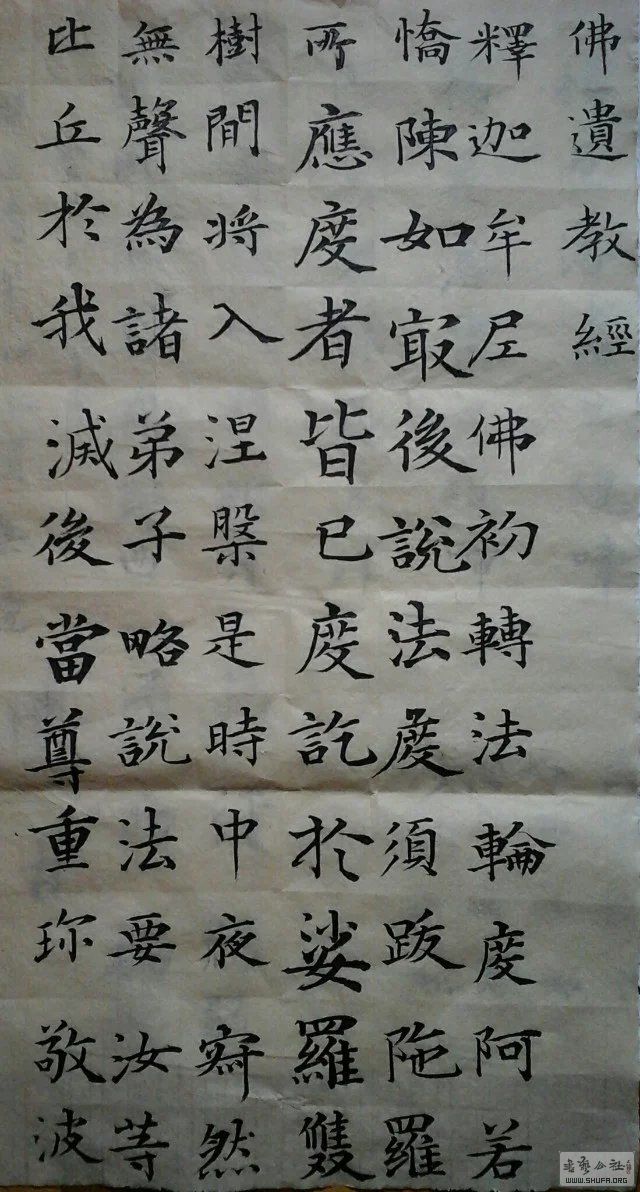 佛遺教經
釋迦牟尼佛初轉法輪度阿若
憍陳如㝡後說法度須跋陁羅
所應度者皆已度訖於娑羅雙
樹間將入涅槃是時中夜寂然
無聲為諸弟子略說法要汝等
比丘於我滅後當尊重珎敬波
WWW.SHUFA.ORG